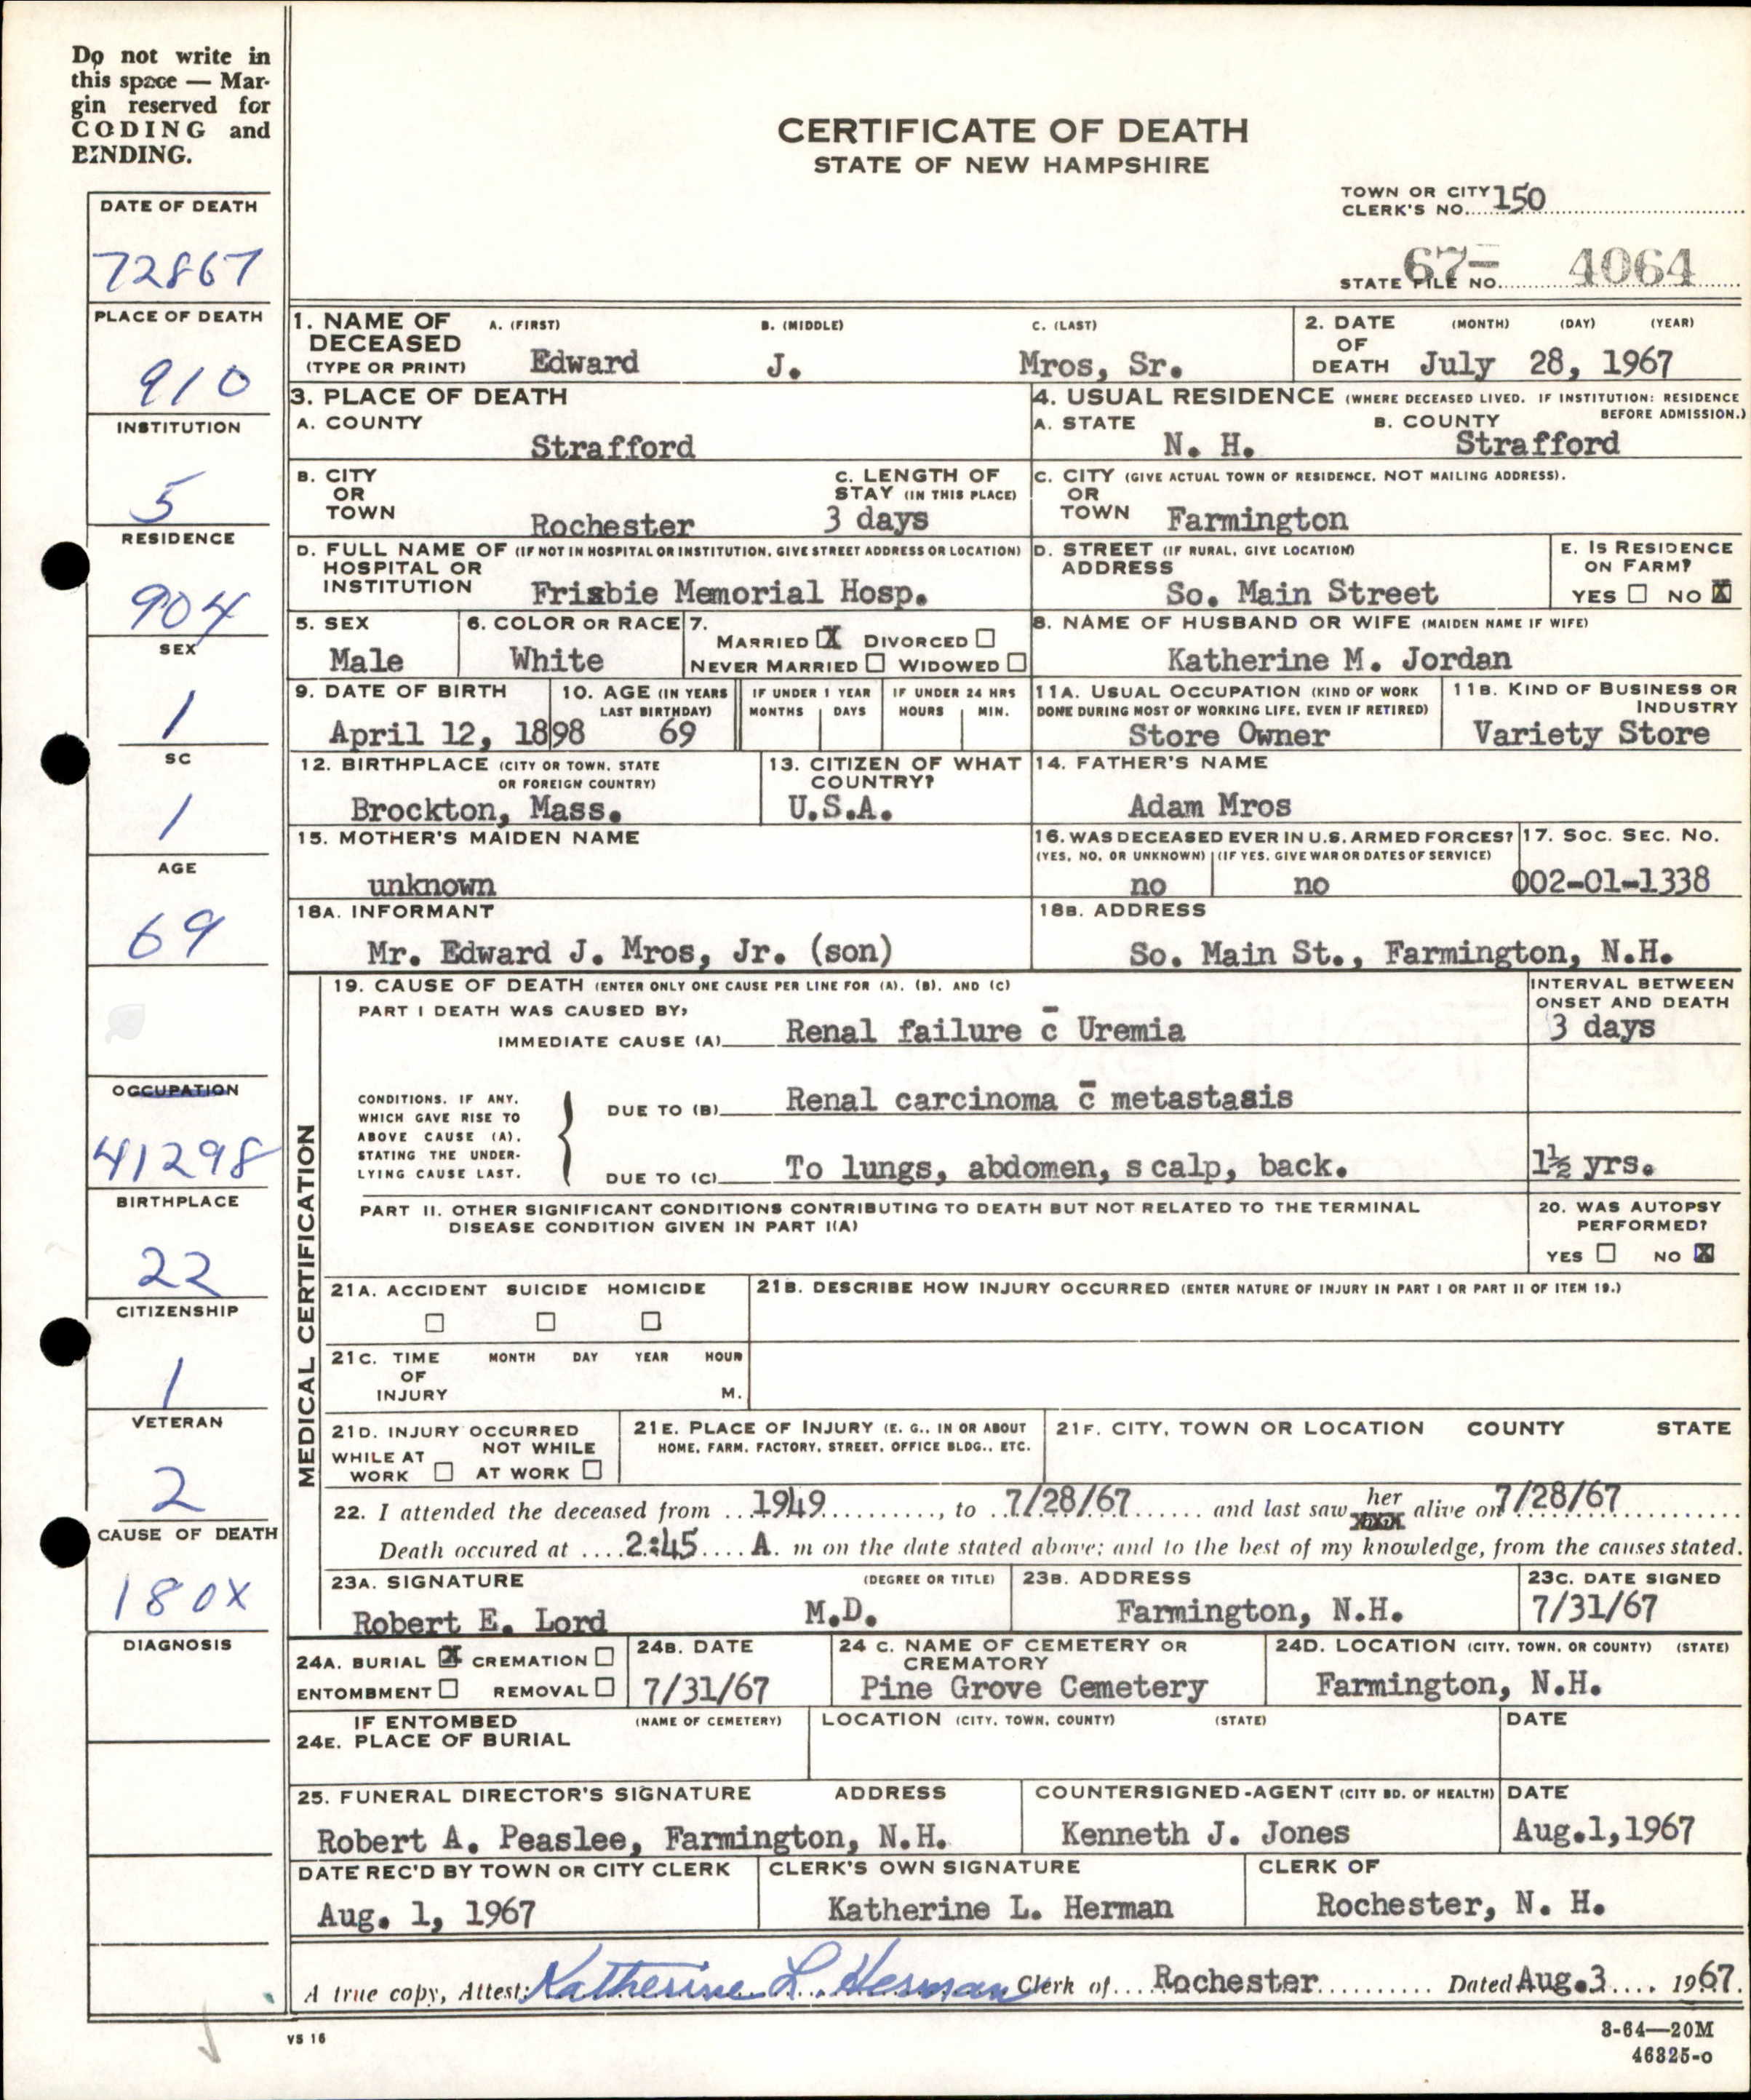 Do not write in
this space — Mar-
gin reserved for
CODING and
BINDING.
CERTIFICATE OF DEATH
STATE OF NEW HAMPSHIRE
TOWN OR CITY
CLERK'S NO. 150
STATE FILE NO. 67- 4064
DATE OF DEATH
72867
PLACE OF DEATH
910
INSTITUTION
5
RESIDENCE
904
SEX
1
SC
1
AGE
69
OCCUPATION
41298
BIRTHPLACE
22
CITIZENSHIP
1
VETERAN
2
CAUSE OF DEATH
180X
DIAGNOSIS
1. NAME OF DECEASED (TYPE OR PRINT) A. (FIRST) B. (MIDDLE) C. (LAST)
Edward J. Mros, Sr.
2. DATE OF DEATH (MONTH) (DAY) (YEAR)
July 28, 1967
3. PLACE OF DEATH
A. COUNTY
Strafford
4. USUAL RESIDENCE (WHERE DECEASED LIVED. IF INSTITUTION: RESIDENCE BEFORE ADMISSION.)
A. STATE B. COUNTY
N. H. Strafford
B. CITY OR TOWN
Rochester
C. LENGTH OF STAY (IN THIS PLACE)
3 days
C. CITY (GIVE ACTUAL TOWN OF RESIDENCE, NOT MAILING ADDRESS).
OR TOWN Farmington
D. FULL NAME OF (IF NOT IN HOSPITAL OR INSTITUTION, GIVE STREET ADDRESS OR LOCATION)
HOSPITAL OR INSTITUTION Frisbie Memorial Hosp.
D. STREET (IF RURAL, GIVE LOCATION)
ADDRESS So. Main Street
E. IS RESIDENCE ON FARM?
YES ☐ NO ☒
5. SEX
Male
6. COLOR OR RACE
White
7.
MARRIED ☒ DIVORCED ☐
NEVER MARRIED ☐ WIDOWED ☐
8. NAME OF HUSBAND OR WIFE (MAIDEN NAME IF WIFE)
Katherine M. Jordan
9. DATE OF BIRTH
April 12, 1898
10. AGE (IN YEARS LAST BIRTHDAY)
69
IF UNDER 1 YEAR
MONTHS DAYS
IF UNDER 24 HRS
HOURS MIN.
11A. USUAL OCCUPATION (KIND OF WORK DONE DURING MOST OF WORKING LIFE, EVEN IF RETIRED)
Store Owner
11B. KIND OF BUSINESS OR INDUSTRY
Variety Store
12. BIRTHPLACE (CITY OR TOWN, STATE OR FOREIGN COUNTRY)
Brockton, Mass.
13. CITIZEN OF WHAT COUNTRY?
U.S.A.
14. FATHER'S NAME
Adam Mros
15. MOTHER'S MAIDEN NAME
unknown
16. WAS DECEASED EVER IN U.S. ARMED FORCES?
(YES, NO, OR UNKNOWN) (IF YES, GIVE WAR OR DATES OF SERVICE)
no no
17. SOC. SEC. NO.
002-01-1338
18A. INFORMANT
Mr. Edward J. Mros, Jr. (son)
18B. ADDRESS
So. Main St., Farmington, N.H.
MEDICAL CERTIFICATION
19. CAUSE OF DEATH (ENTER ONLY ONE CAUSE PER LINE FOR (A), (B), AND (C)
INTERVAL BETWEEN ONSET AND DEATH
PART I DEATH WAS CAUSED BY:
IMMEDIATE CAUSE (A) Renal failure c̄ Uremia 3 days
CONDITIONS, IF ANY, WHICH GAVE RISE TO ABOVE CAUSE (A), STATING THE UNDER-LYING CAUSE LAST.
DUE TO (B) Renal carcinoma c̄ metastasis
DUE TO (C) To lungs, abdomen, scalp, back. 1½ yrs.
PART II. OTHER SIGNIFICANT CONDITIONS CONTRIBUTING TO DEATH BUT NOT RELATED TO THE TERMINAL
DISEASE CONDITION GIVEN IN PART I(A)
20. WAS AUTOPSY PERFORMED?
YES ☐ NO ☒
21A. ACCIDENT SUICIDE HOMICIDE
☐ ☐ ☐
21B. DESCRIBE HOW INJURY OCCURRED (ENTER NATURE OF INJURY IN PART I OR PART II OF ITEM 19.)
21C. TIME OF INJURY MONTH DAY YEAR HOUR
M.
21D. INJURY OCCURRED
WHILE AT WORK ☐ NOT WHILE AT WORK ☐
21E. PLACE OF INJURY (E. G., IN OR ABOUT HOME, FARM, FACTORY, STREET, OFFICE BLDG., ETC.
21F. CITY, TOWN OR LOCATION COUNTY STATE
22. I attended the deceased from 1949, to 7/28/67 and last saw her alive on 7/28/67
Death occured at 2:45 A. m on the date stated above; and to the best of my knowledge, from the causes stated.
23A. SIGNATURE (DEGREE OR TITLE)
Robert E. Lord M.D.
23B. ADDRESS
Farmington, N.H.
23C. DATE SIGNED
7/31/67
24A. BURIAL ☒ CREMATION ☐
ENTOMBMENT ☐ REMOVAL ☐
24B. DATE
7/31/67
24 C. NAME OF CEMETERY OR CREMATORY
Pine Grove Cemetery
24D. LOCATION (CITY, TOWN, OR COUNTY) (STATE)
Farmington, N.H.
IF ENTOMBED (NAME OF CEMETERY)
24E. PLACE OF BURIAL
LOCATION (CITY, TOWN, COUNTY) (STATE)
DATE
25. FUNERAL DIRECTOR'S SIGNATURE ADDRESS
Robert A. Peaslee, Farmington, N.H.
COUNTERSIGNED-AGENT (CITY BD. OF HEALTH)
Kenneth J. Jones
DATE
Aug.1,1967
DATE REC'D BY TOWN OR CITY CLERK
Aug. 1, 1967
CLERK'S OWN SIGNATURE
Katherine L. Herman
CLERK OF
Rochester, N. H.
A true copy, Attest: Katherine L. Herman Clerk of Rochester Dated Aug.3 1967.
VS 16
8-64—20M
46325-o